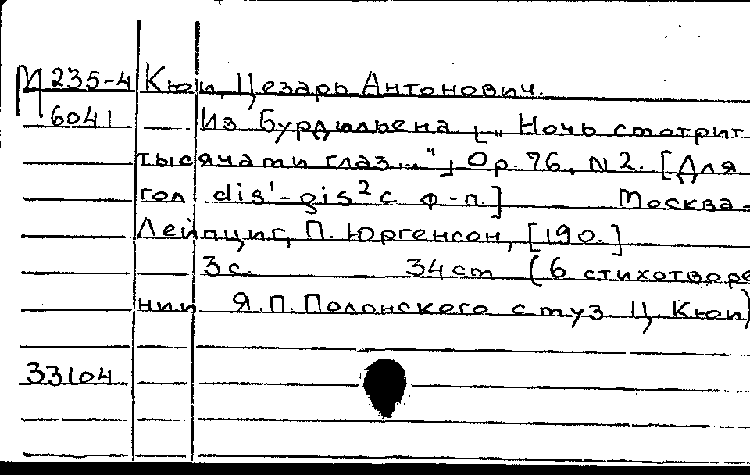 М 235-4 Кюи, Цезарь Антонович.
6041 Из Бурдильена [„Ночь смотрит
тысячами глаз..."] Op. 76, N 2. [Для
гол dis¹-gis² с ф-п.] Москва-
Лейпциг, П. Юргенсон, [190.]
3 с. 34 cm (6 стихотворе
ний Я.П. Полонского с муз Ц. Кюи)
33104